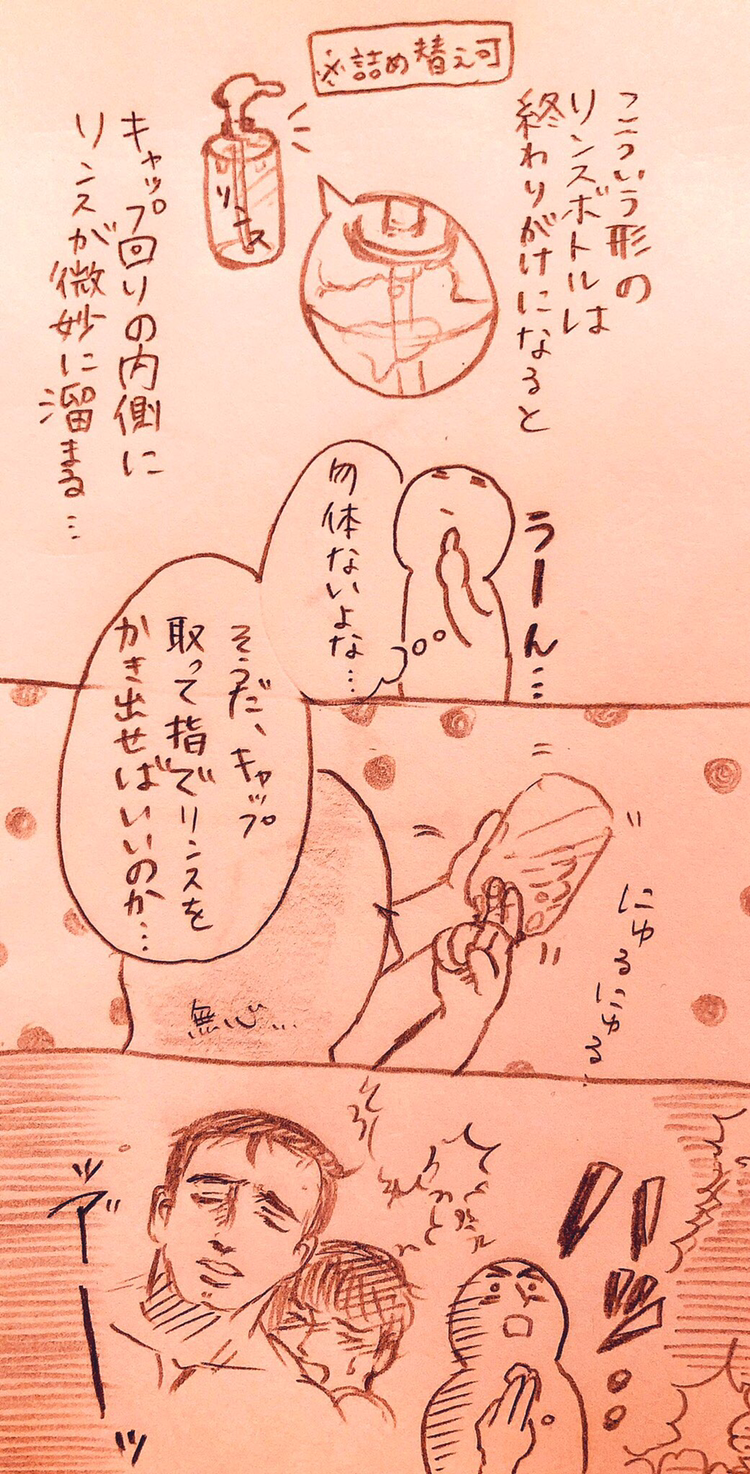 ※詰め替え可
こういう形の
リンスボトルは
終わりがけになると
リンス
キャップ回りの内側に
リンスが微妙に溜まる…
うーん…
勿体ないよな…
そうだ、キャップ
取って指でリンスを
かき出せばいいのか…
にゅるにゅる…
無心…
ハッ!!